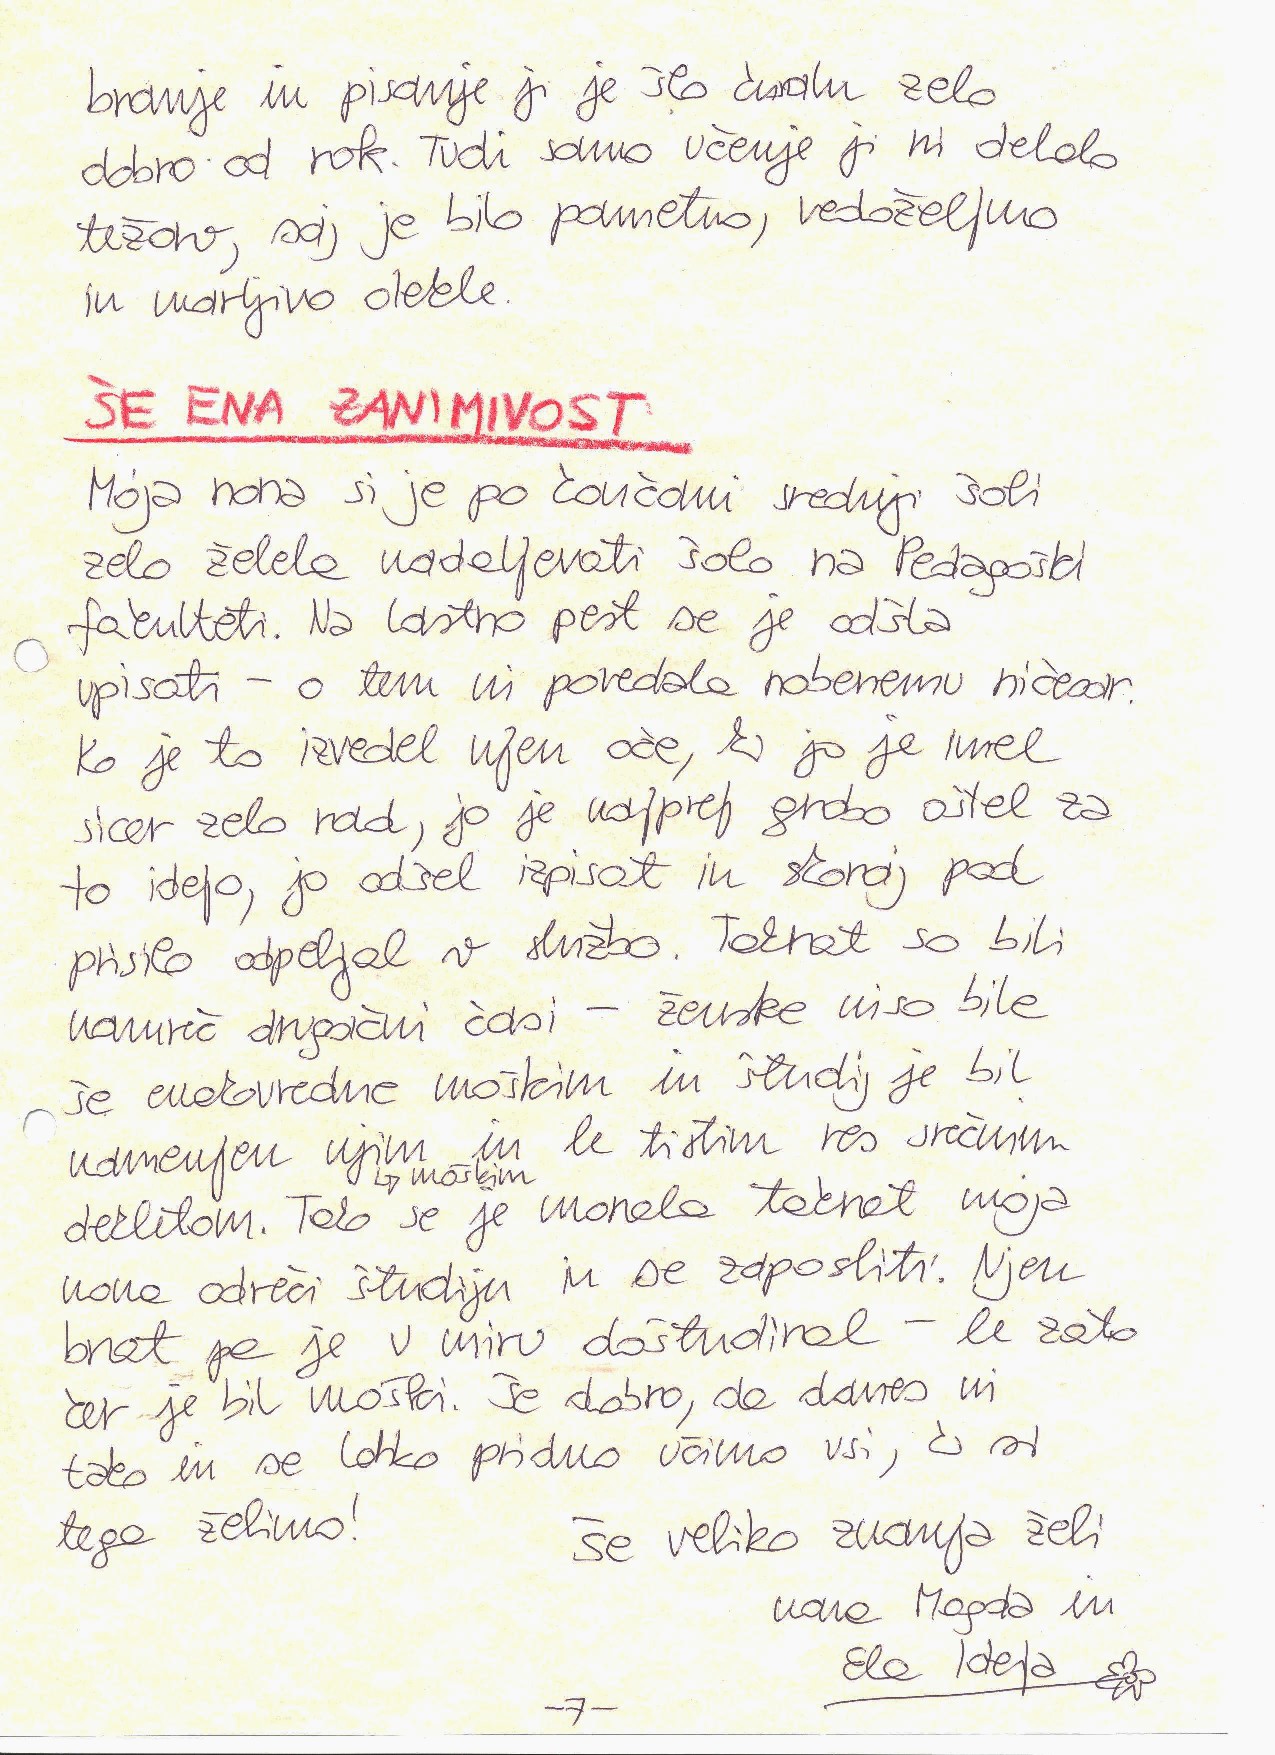 branje in pisanje ji je šlo kmalu zelo
dobro od rok. Tudi samo učenje ji ni delalo
težav, saj je bila pametna, vedoželjna
in marljiva dekle.
ŠE ENA ZANIMIVOST
Moja nona si je po končani srednji šoli
zelo želela nadaljevati šolo na Pedagoški
fakulteti. Na lastno pest se je odšla
vpisati – o tem ni povedala nobenemu ničesar.
Ko je to izvedel njen oče, ki jo je imel
sicer zelo rad, jo je najprej grobo oštel za
to idejo, jo odšel izpisat in skoraj pod
prisilo odpeljal v službo. Takrat so bili
namreč drugačni časi – ženske niso bile
še enakovredne moškim in študij je bil
namenjen njim in le tistim res srečnim
↳ moškim
dekletom. Tako se je morala takrat moja
nona odreči študiju in se zaposliti. Njen
brat pa je v miru doštudiral – le zato
ker je bil moški. Še dobro, da danes ni
tako in se lahko pridno učimo vsi, ki si
tega želimo!
Še veliko znanja želi
nona Magda in
Ela Ideja
-7-